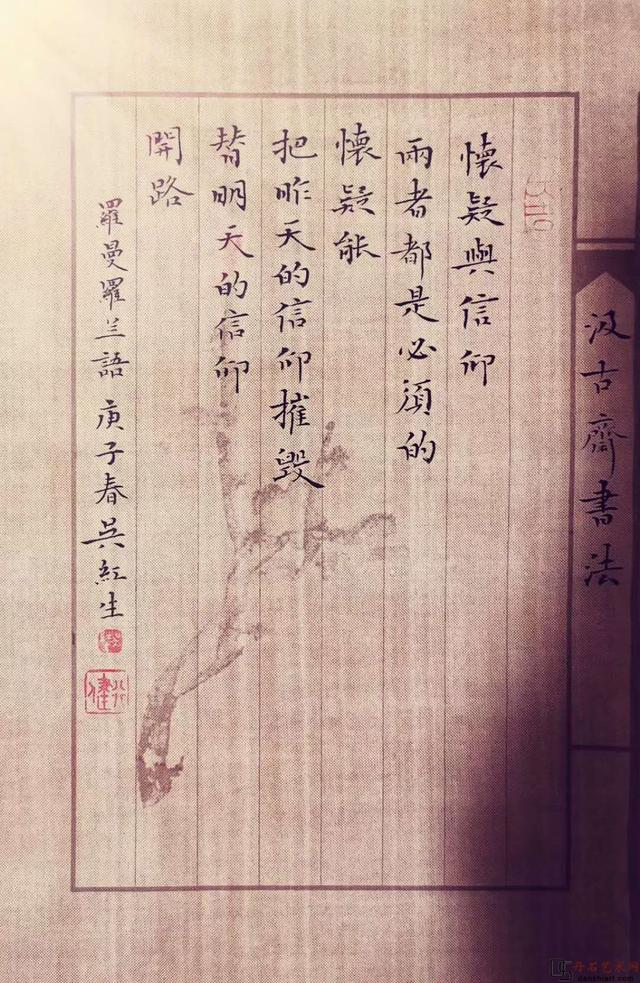 懷疑與信仰
兩者都是必須的
懷疑能
把昨天的信仰摧毀
替明天的信仰
開路
羅曼羅兰語 庚子春吳紅生
汲古齋書法
丹石艺术网
danshiart.com